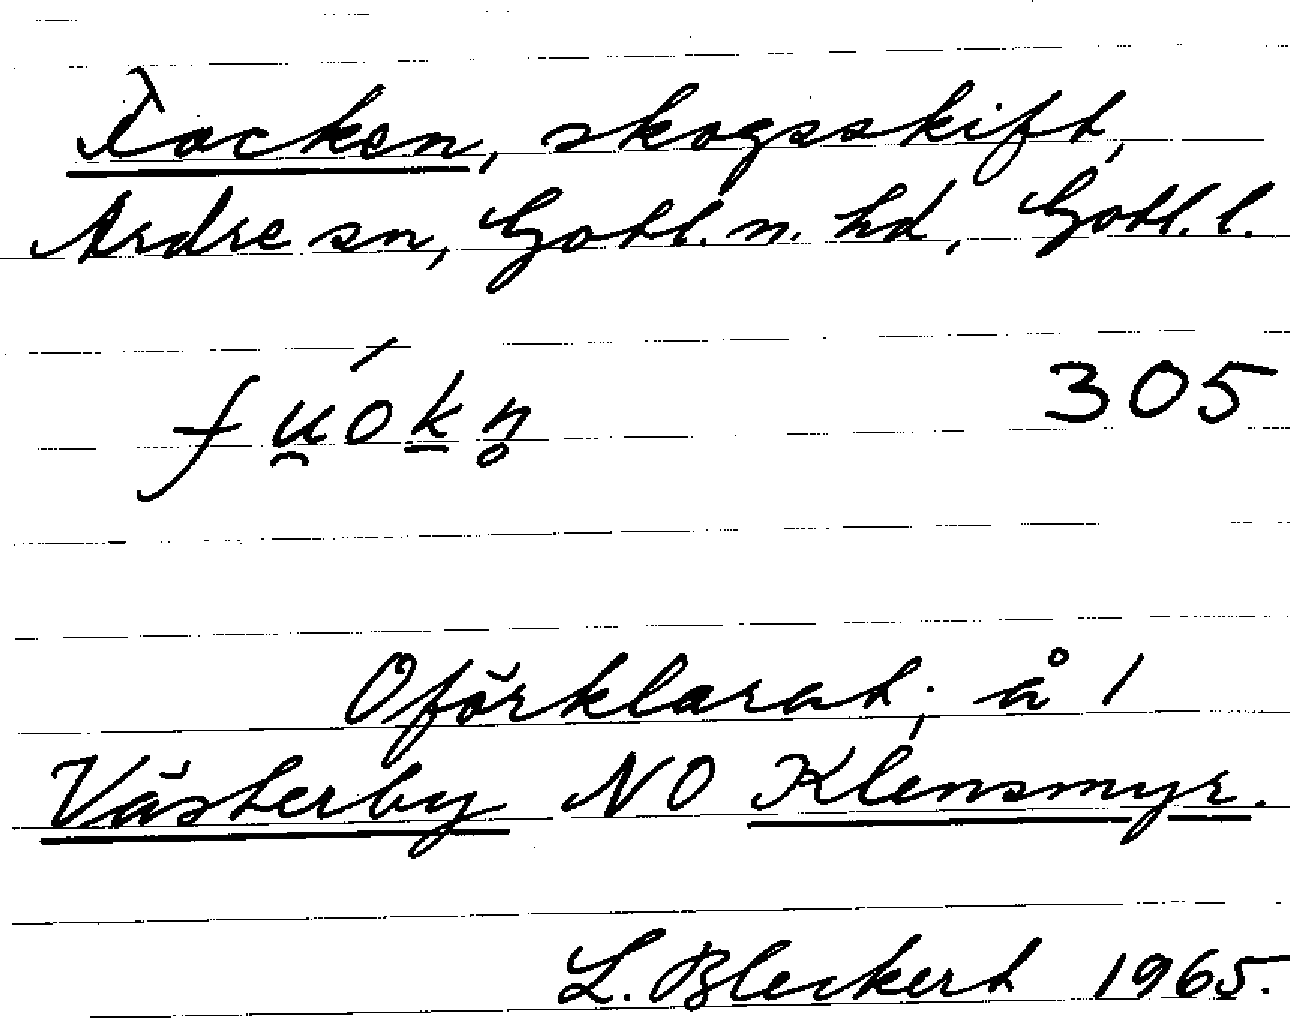 Focken, skogsskift,
Ardre sn, Gotl. n. hd, Gotl. l.
fu̯ók̠n̥ 305
Oförklarat; å 1
Västerby NO Klensmyr.
L. Bleckert 1965.